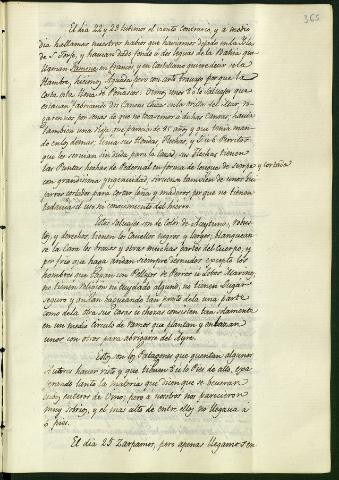 365
El dia 22 y 23 tubimos el viento contrario, y a medio
dia hallamos nuestros navios que haviamos dejado en la Isla
de S. Josef, y dando fondo a dos leguas de la Bahia que
llaman Famine en frances y en Castellano quiere decir de la
Hambre, hicieron Aguada pero con corto trabajo por que la
costa esta llena de Peñascos: Vimos unos 5 ó 6 Salvajes que
estavan fabricando dos Canoas chicas en la orilla del Mar, ro-
garon nos por señas de que no tocasemos a dichas Canoas, havia
tambien una Vieja que parecia de 80 años y que tenia man-
do en los demas; tenia sus Hondas, Flechas, y 5 ú 6 Perritos
que les servian sin duda para la Caza; sus Flechas tienen
las Puntas hechas de Pedernal en forma de lengua de Sierpe y cortada
con grandisima ingeniosidad, sirvense tambien de unos
para cortar leña y maderos por que no tienen
todavia el uso ni conocimiento del hierro.
Estos salvajes son de Color de Azeytuna, robus-
tos, y derechos, tienen los Cavellos negros y largos, blanquean-
se la Cara los brazos y otras muchas partes del Cuerpo, y
por frio que haga andan siempre desnudos excepto los
hombros que tapan con Pellejos de Perros ú Lobos Marinos,
no tienen religion ni cuydado alguno, no tienen Lugar
seguro y andan vagueando tan presto de la una parte
como de la otra sus Casas ú chozas consisten tan solamente
en un medio circulo de ramos que plantan y enlazan
unos con otros para abrigarse del Ayre.
Estos son los Patagones que quentan algunos
Autores haver visto y que tienen 8 ú 10 Pies de alto, exa-
gerando tanto la materia que dicen que se
enteros de Vino; pero a nosotros nos parecieron
muy sobrios, y el mas alto de entre ellos no llegava a
6 pies.
El dia 25 Zarpamos, pero apenas llegamos en